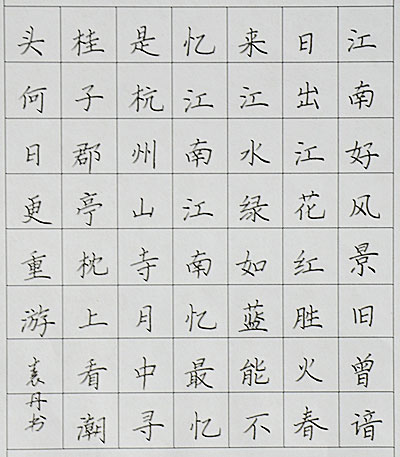 江南好风景旧曾谙
日出江花红胜火春
来江水绿如蓝能不
忆江南江南忆最忆
是杭州山寺月中寻
桂子郡亭枕上看潮
头何日更重游
袁丹书